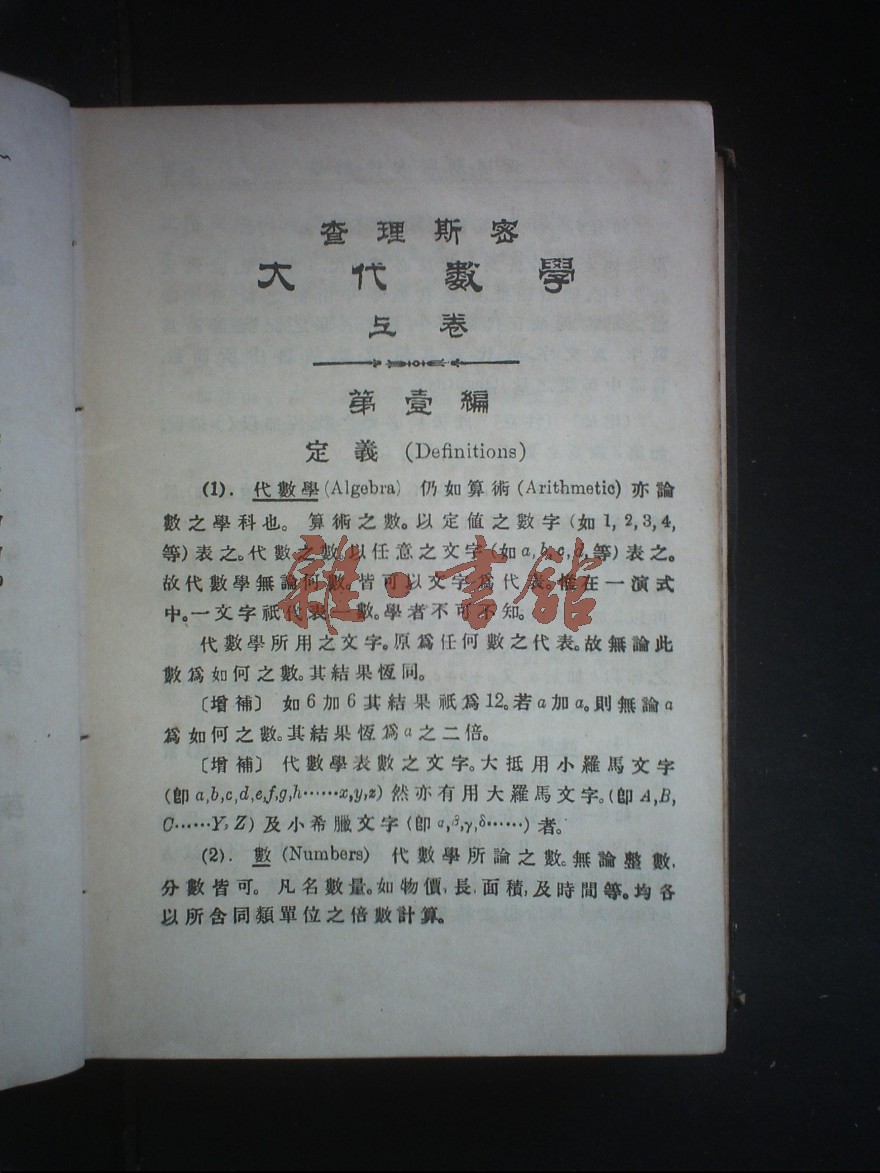 查理斯密
大代數學
上卷
第壹編
定義 (Definitions)
(1). 代數學 (Algebra) 仍如算術 (Arithmetic) 亦論
數之學科也。算術之數。以定值之數字 (如 1, 2, 3, 4,
等) 表之。代數之數。以任意之文字 (如 a, b, c, d, 等) 表之。
故代數學無論何數。皆可以文字爲代表。惟在一演式
中。一文字祇代表一數。學者不可不知。
雜·書舘
代數學所用之文字。原爲任何數之代表。故無論此
數爲如何之數。其結果恆同。
〔增補〕 如 6 加 6 其結果祇爲 12。若 a 加 a。則無論 a
爲如何之數。其結果恆爲 a 之二倍。
〔增補〕 代數學表數之文字。大抵用小羅馬文字
(卽 a,b,c,d,e,f,g,h……x,y,z) 然亦有用大羅馬文字。(卽 A,B,
C……Y, Z) 及小希臘文字 (卽 α,β,γ,δ……) 者。
(2). 數 (Numbers) 代數學所論之數。無論整數,
分數皆可。凡名數量。如物價, 長, 面積, 及時間等。均各
以所含同類單位之倍數計算。